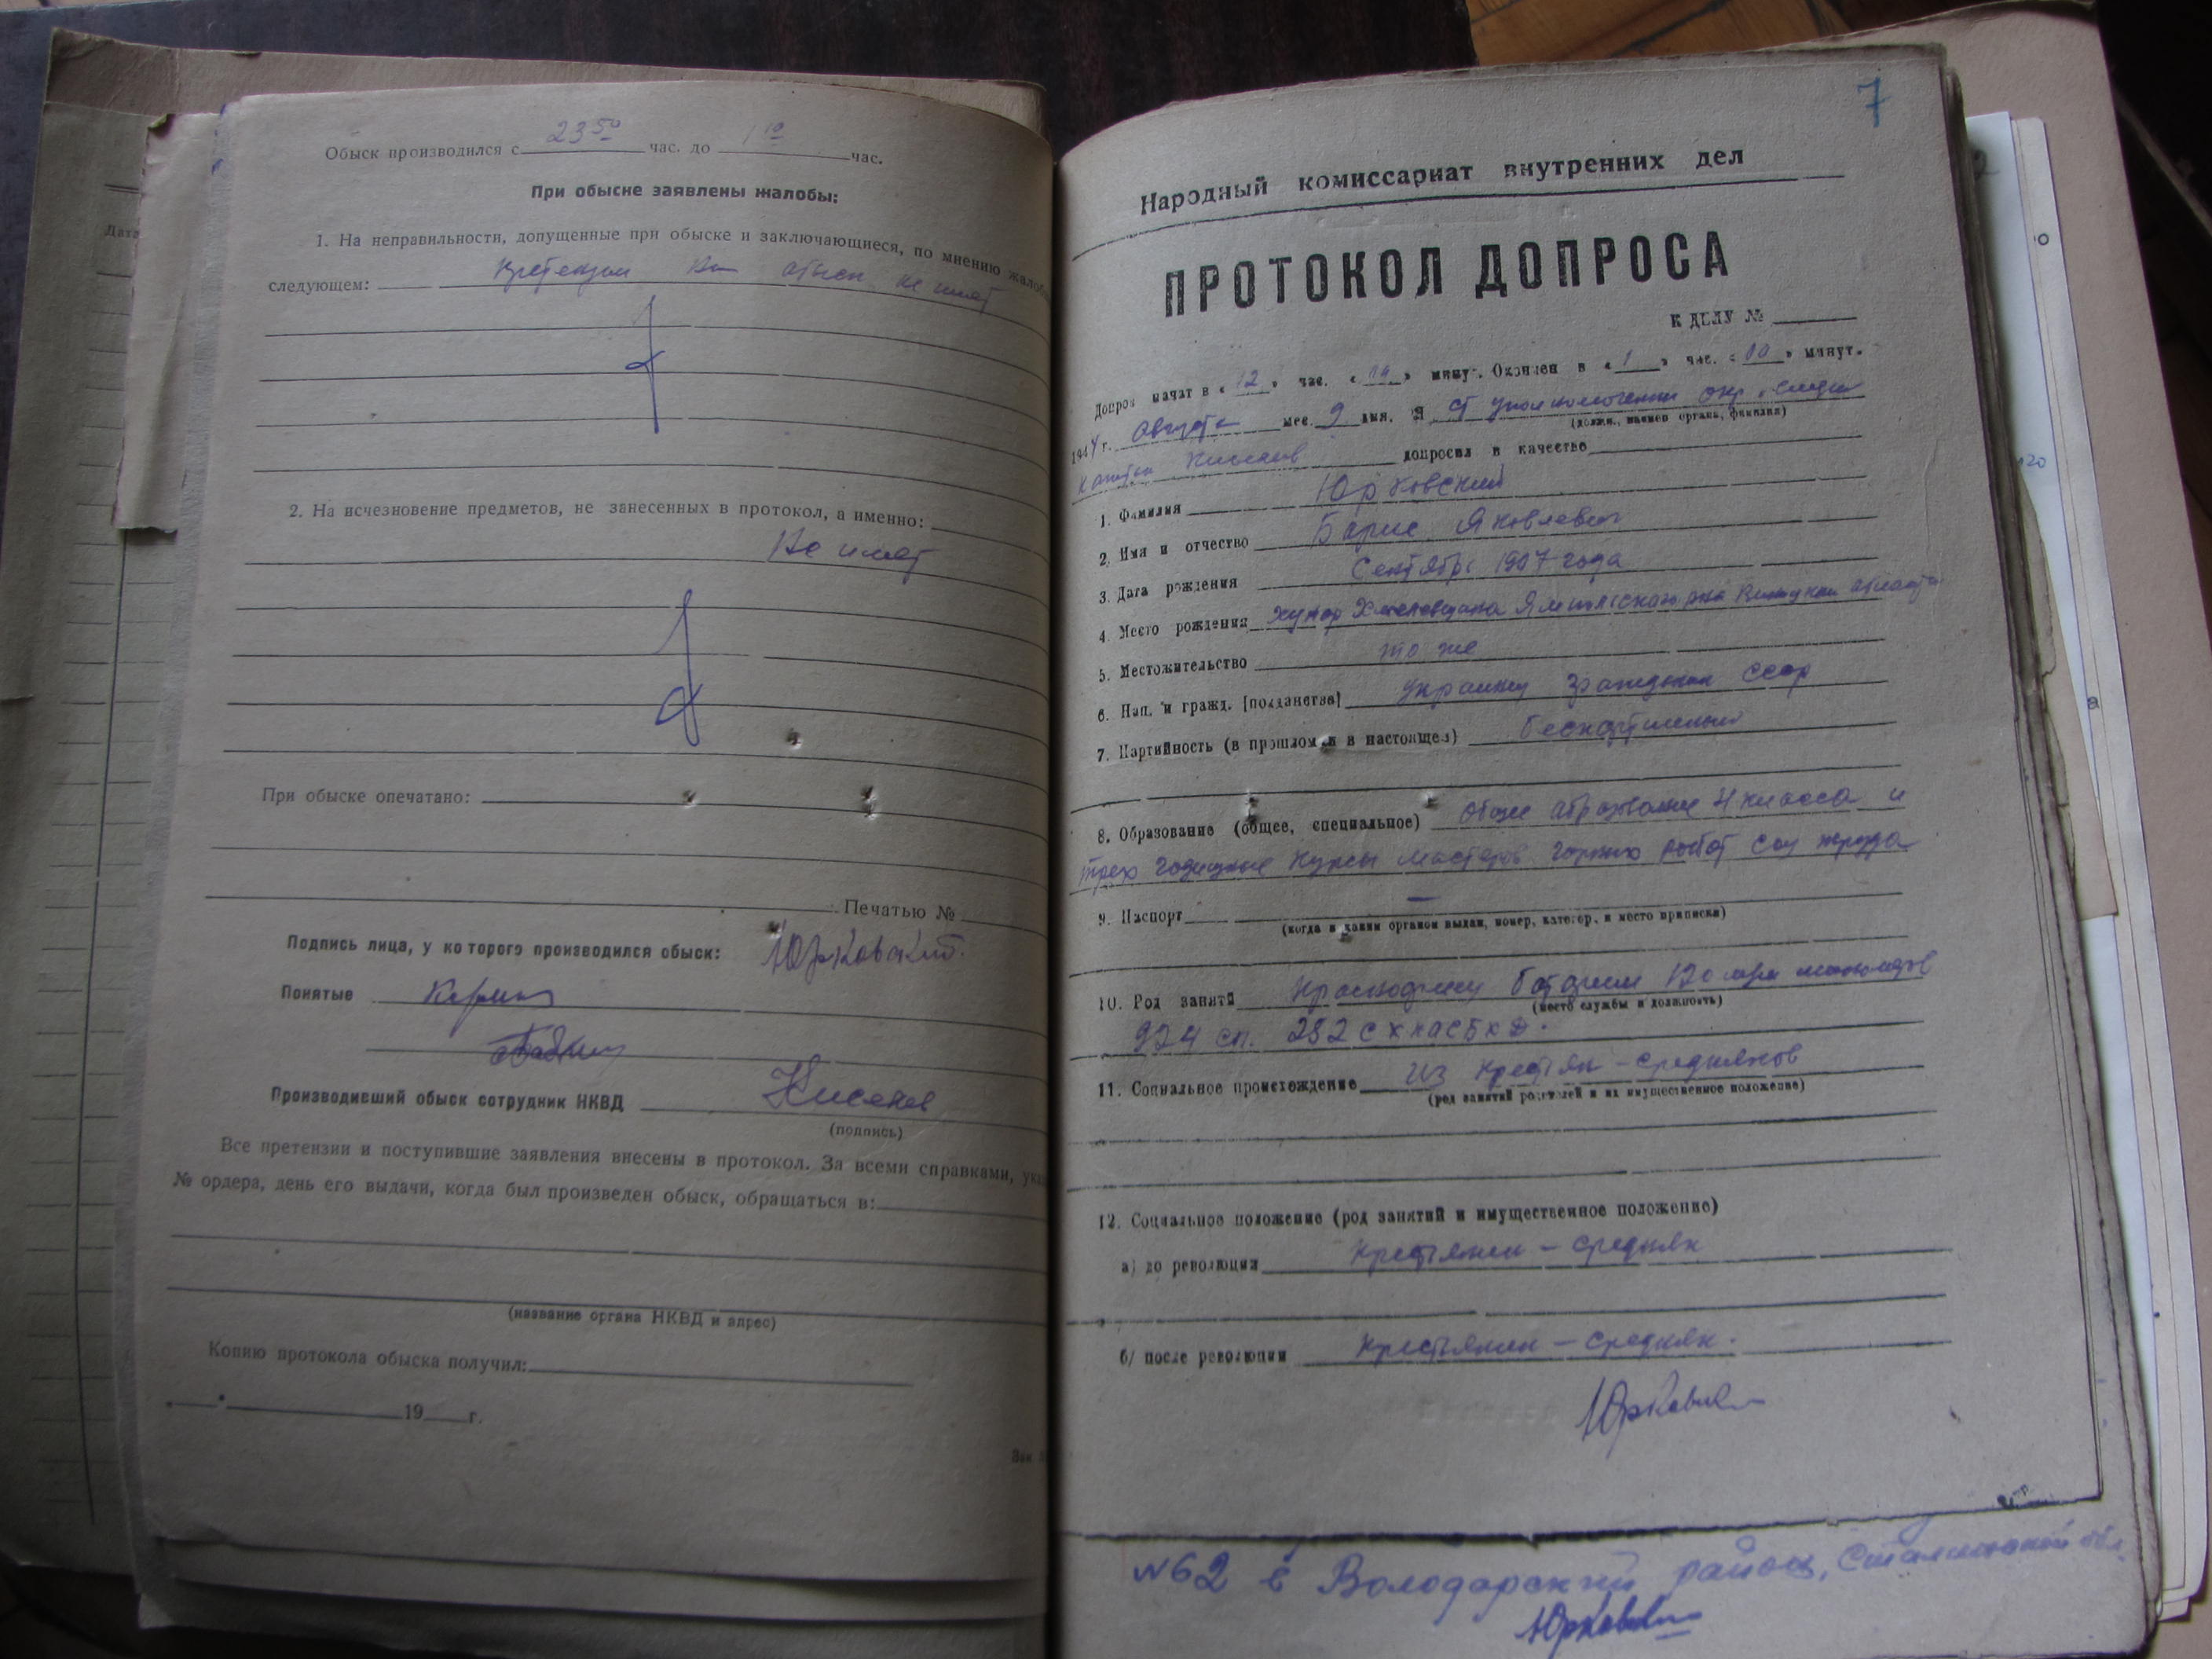 Обыск производился с 23 50 час. до 1 10 час.
При обыске заявлены жалобы:
1. На неправильности, допущенные при обыске и заключающиеся, по мнению
следующем: не имеет
2. На исчезновение предметов, не занесенных в протокол, а именно:
Не имеет
При обыске опечатано:
Печатью №
Подпись лица, у которого производился обыск: Юрковский
Понятые
Производивший обыск сотрудник НКВД Киселев
(подпись)
Все претензии и поступившие заявления внесены в протокол. За всеми справками,
№ ордера, день его выдачи, когда был произведен обыск, обращаться в:
(название органа НКВД и адрес)
Копию протокола обыска получил:
19 г.
7
Народный комиссариат внутренних дел
ПРОТОКОЛ ДОПРОСА
К ДЕЛУ №
Допрос начат в « 12 » час. « » минут. Окончен в « 1 » час. « 00 » минут.
1944 г. Августа мес. 9 дня. Я ст уполномоченный окр
(должн., наимен органа, фамилия)
капитан Киселев допросил в качестве
1. Фамилия Юрковский
2. Имя и отчество Борис Яковлевич
3. Дата рождения Сентябрь 1907 года
4. Место рождения хутор Ямпольского области
5. Местожительство то же
6. Нац. и гражд. [подданства] украинец гражданин ссср
7. Партийность (в прошлом и в настоящем) беспартийный
8. Образование (общее, специальное) общее образование 4 класса и
трех годичные курсы мастеров горных работ
9. Паспорт —
(когда и каким органом выдан, номер, категор. и место приписки)
10. Род занятий 120 мм минометов
(место службы и должность)
924 сп. 252 с
11. Социальное происхождение из крестьян - середняков
(род занятий родителей и их имущественное положение)
12. Социальное положение (род занятий и имущественное положение)
а) до революции крестьянин - середняк
б/ после революции крестьянин - середняк.
Юрковский
№62 в Володарский район, Сталинской обл.
Юрковский